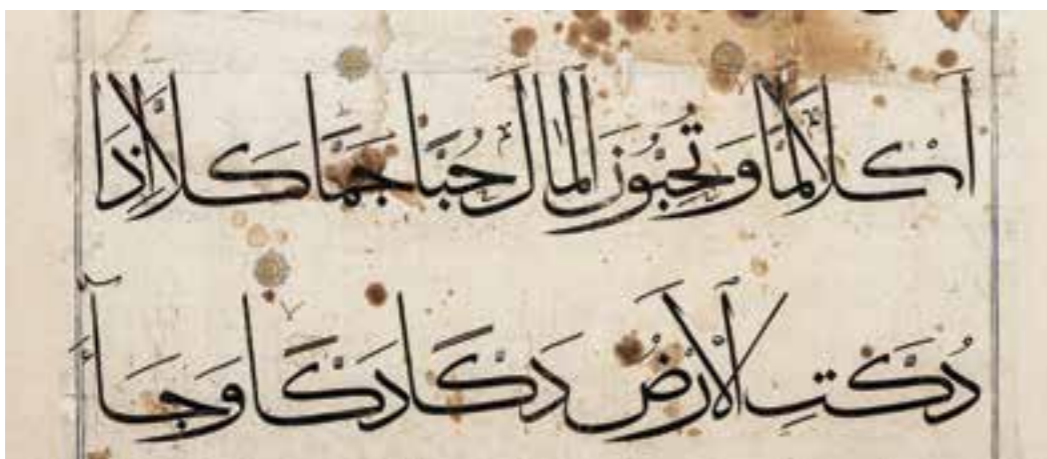 أَكْلًا لَمًّا وَتُحِبُّونَ الْمَالَ حُبًّا جَمًّا كَلَّا إِذَا
دُكَّتِ الْأَرْضُ دَكًّا دَكًّا وَجَاءَ